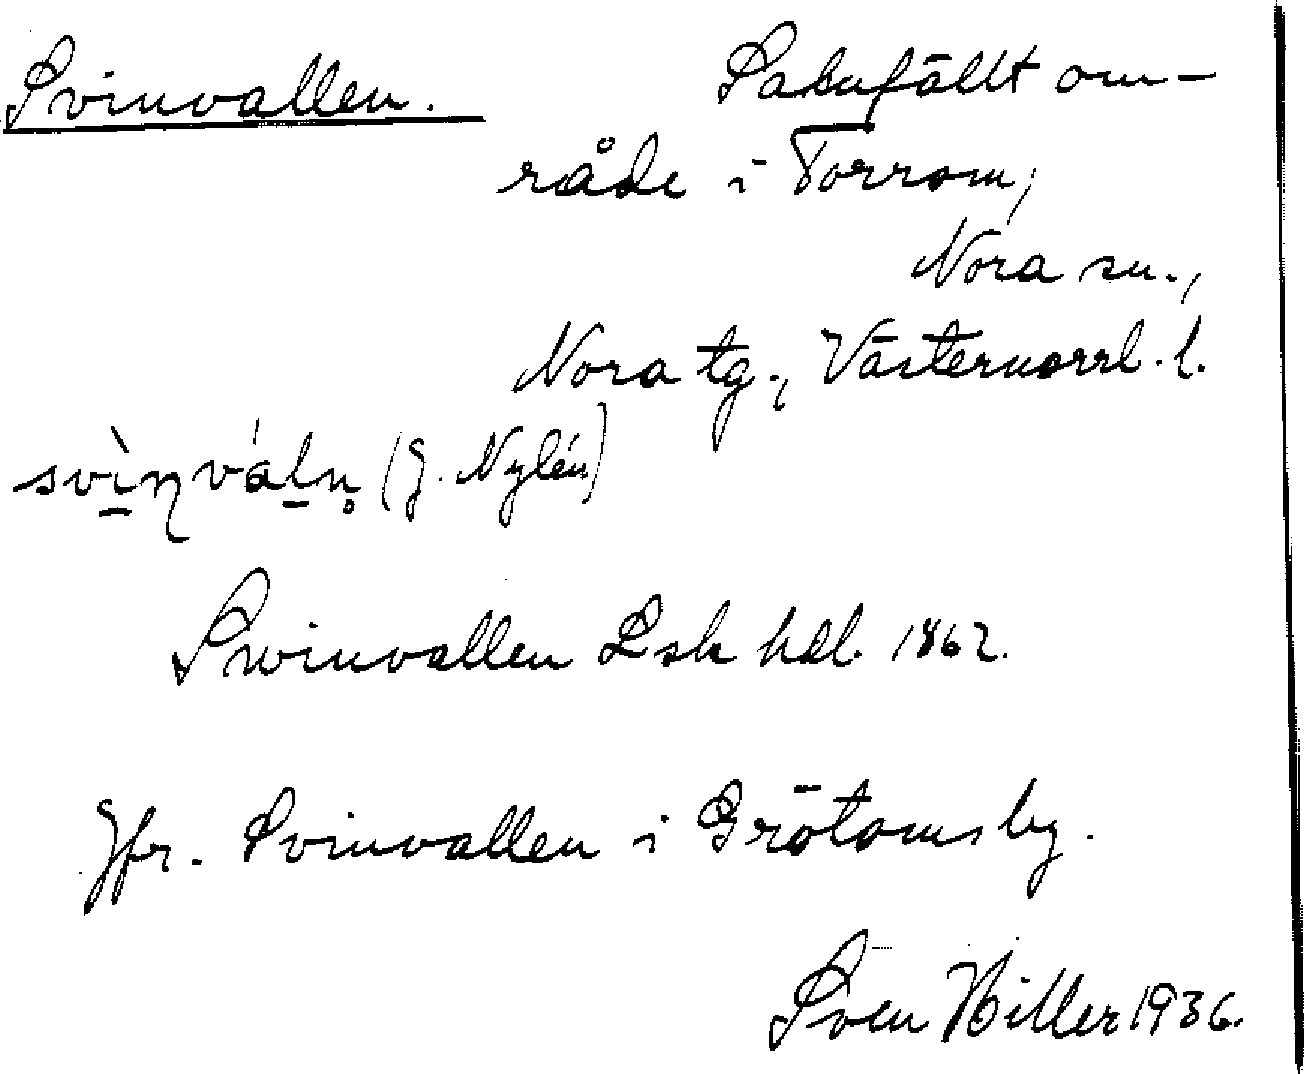 Svinvallen. Sakufällt om-
råde i Torrom,
Nora sn.,
Nora tg., Västernorrl. l.
svìnválṇ (J. Nylén)
Swinvallen Lsk hdl. 1862.
Jfr. Svinvallen i Grötomsby.
Sven Hiller 1936.